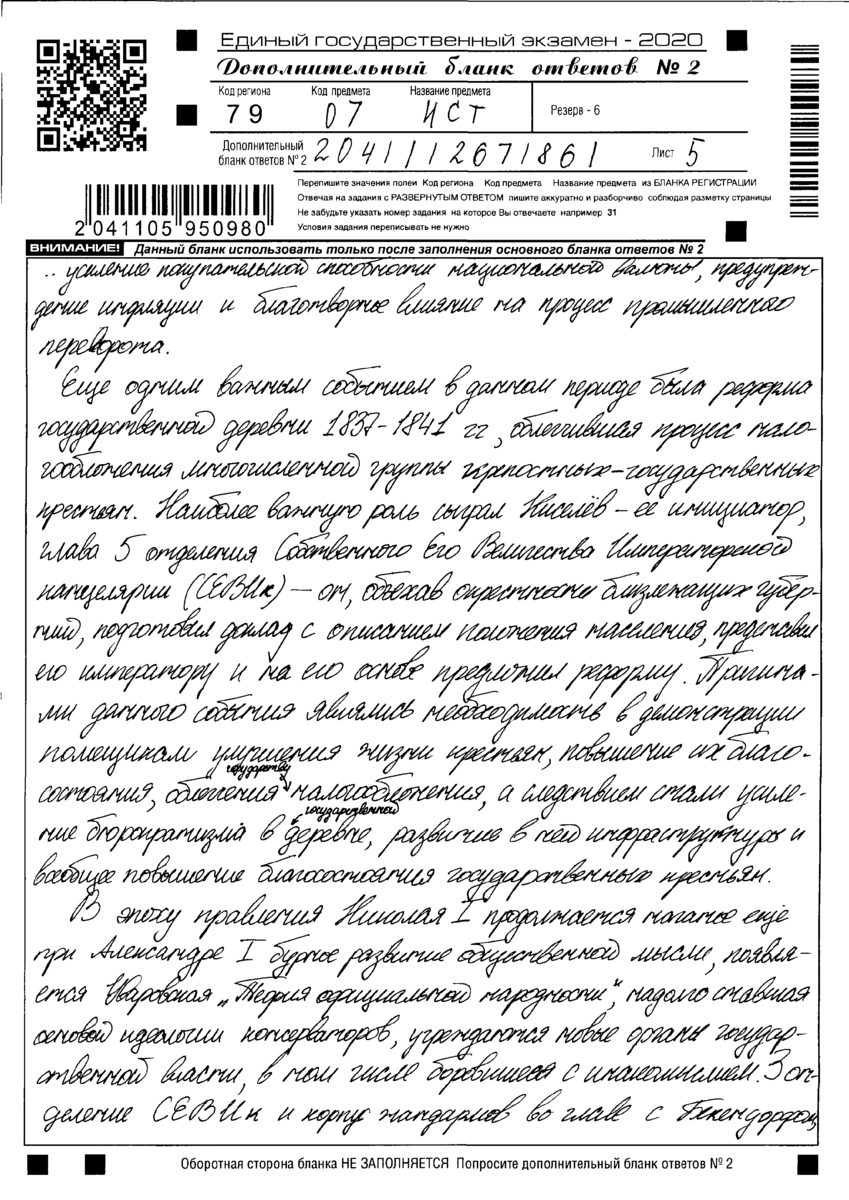 Единый государственный экзамен - 2020
Дополнительный бланк ответов № 2
Код региона Код предмета Название предмета
79 07 ИСТ Резерв - 6
Дополнительный
бланк ответов № 2 2041112671861 Лист 5
2 041105 950980
Перепишите значения полей Код региона Код предмета Название предмета из БЛАНКА РЕГИСТРАЦИИ
Отвечая на задания с РАЗВЕРНУТЫМ ОТВЕТОМ пишите аккуратно и разборчиво соблюдая разметку страницы
Не забудьте указать номер задания на которое Вы отвечаете например 31
Условия задания переписывать не нужно
ВНИМАНИЕ! Данный бланк использовать только после заполнения основного бланка ответов № 2
.. усиление покупательской способности национальной валюты, предупреж-
дение инфляции и благотворное влияние на процесс промышленного
переворота.
Еще одним важным событием в данном периоде была реформа
государственной деревни 1837-1841 гг, облегчившая процесс нало-
гообложения многочисленной группы крепостных-государственных
крестьян. Наиболее важную роль сыграл Киселёв – ее инициатор,
глава 5 отделения Собственного Его Величества Императорской
канцелярии (СЕВИк) – он, объехав окрестности близлежащих губер-
ний, подготовил доклад с описанием положения населения, представил
его императору и на его основе предложил реформу. Причина-
ми данного события являлись необходимость в демонстрации
помещикам улучшения жизни крестьян, повышение их благо-
состояния, облегчения государству налогообложения, а следствием стали усиле-
ние бюрократизма в государственной деревне, развитие в ней инфраструктуры и
вообщее повышение благосостояния государственных крестьян.
В эпоху правления Николая I продолжается начатое ещё
при Александре I бурное развитие общественной мысли, появля-
ется Уваровская „Теория официальной народности“, надолго ставшая
основой идеологии консерваторов, учреждаются новые органы государ-
ственной власти, в том числе боровшиеся с инакомыслием. 3 от-
деление СЕВИк и корпус жандармов во главе с Бекендорфом,
Оборотная сторона бланка НЕ ЗАПОЛНЯЕТСЯ Попросите дополнительный бланк ответов № 2